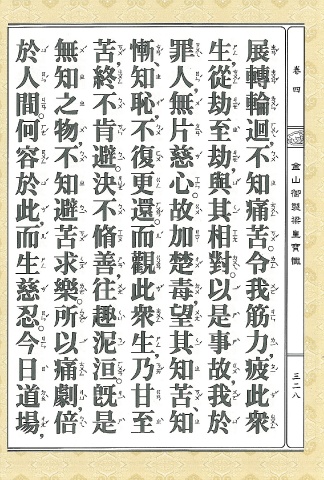 卷四
金山御製梁皇寶懺
三二八
展轉輪迴，不知痛苦。令我筋力疲此衆
生，從劫至劫，與其相對。以是事故，我於
罪人，無片慈心，故加楚毒，望其知苦、知
慚、知恥，不復更還。而觀此衆生，乃甘至
苦，終不肯避。決不脩善，往趣泥洹。旣是
無知之物，不知避苦求樂，所以痛劇，倍
於人間，何容於此而生慈忍。今日道場，